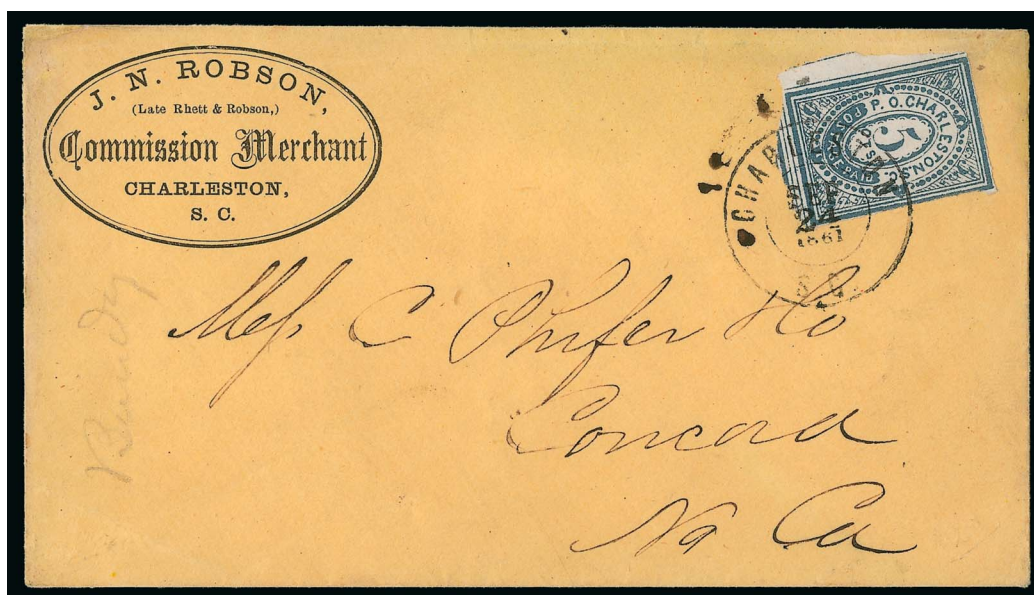 J. N. ROBSON,
(Late Rhett & Robson,)
Commission Merchant
CHARLESTON,
S. C.
P. O. CHARLESTON, S.C.
POSTAGE
5
CHARLESTON
SEP
24
1861
S C
Mess C Phifer & Co
Concord
No Ca